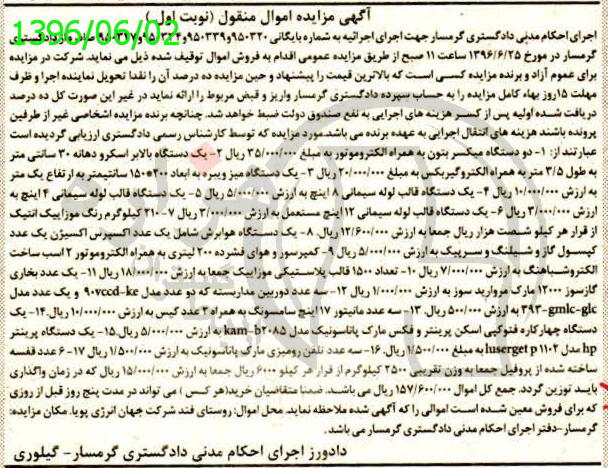 1396/06/02
آگهی مزایده اموال منقول (نوبت اول)
اجرای احکام مدنی دادگستری گرمسار جهت اجرای اجرائیه به شماره بایگانی ۹۵۰۳۲۰-۹۵۰۳۲۹و۹۵۰۳۲۴و۹۵۰۳۱۷ صادره از دادگستری
گرمسار در مورخ ۱۳۹۶/۶/۲۵ ساعت ۱۱ صبح از طریق مزایده عمومی اقدام به فروش اموال توقیف شده ذیل می نماید. شرکت در مزایده
برای عموم آزاد و برنده مزایده کسی است که بالاترین قیمت را پیشنهاد و حین مزایده ده درصد آن را نقدا تحویل نماینده اجرا و ظرف
مهلت ۱۵روز بهاء کامل مزایده را به حساب سپرده دادگستری گرمسار واریز و قبض مربوط را ارائه نماید در غیر این صورت کل ده درصد
دریافت شده اولیه پس از کسر هزینه های اجرایی به نفع صندوق دولت ضبط خواهد شد. چنانچه برنده مزایده اشخاصی غیر از طرفین
پرونده باشند هزینه های انتقال اجرایی به عهده برنده می باشد.مورد مزایده که توسط کارشناس رسمی دادگستری ارزیابی گردیده است
عبارتند از: ۱- دو دستگاه میکسر بتون به همراه الکتروموتور به مبلغ ۳۵/۰۰۰/۰۰۰ ریال ۲- یک دستگاه بالابر اسکرو دهانه ۳۰ سانتی متر
به طول ۳/۵ متر به همراه الکتروگیربکس به مبلغ ۲۰/۰۰۰/۰۰۰ ریال ۳- یک دستگاه میز ویبره به ابعاد ۲۰۰*۱۵۰ سانتیمتر به ارتفاع یک متر
به ارزش ۱۰/۰۰۰/۰۰۰ ریال ۴- یک دستگاه قالب لوله سیمانی ۸ اینچ به ارزش ۵/۰۰۰/۰۰۰ ریال ۵- یک دستگاه قالب لوله سیمانی ۴ اینچ به
ارزش ۳/۰۰۰/۰۰۰ ریال ۶- یک دستگاه قالب لوله سیمانی ۱۲ اینچ مستعمل به ارزش ۳/۰۰۰/۰۰۰ ریال ۷-۲۱۰ کیلوگرم رنگ موزاییک آنتیک
از قرار هر کیلو شصت هزار ریال جمعا به ارزش ۱۲/۶۰۰/۰۰۰ ریال. ۸- یک دستگاه هوابرش شامل یک عدد اکسپرس اکسیژن یک عدد
کپسول گاز و شیلنگ و سرپیک به ارزش ۵/۰۰۰/۰۰۰ ریال ۹- کمپرسور و هوای فشرده ۲۰۰ لیتری به همراه الکتروموتور ۲ اسب ساخت
الکتروشباهنگ به ارزش ۷/۰۰۰/۰۰۰ ریال ۱۰- تعداد ۱۵۰۰ قالب پلاستیکی موزاییک جمعا به ارزش ۱۸/۰۰۰/۰۰۰ ریال ۱۱- یک عدد بخاری
گازسوز ۱۲۰۰۰ مارک مروارید سوز به ارزش ۱/۰۰۰/۰۰۰ ریال ۱۲- سه عدد دوربین مداربسته که دو عدد مدل ۹۰vccd-ke و یک عدد مدل
۳۹۳-gmlc-glc به ارزش ۵۰۰/۰۰۰ ریال. ۱۳- سه عدد مانیتور ۱۷ اینچ سامسونگ به همراه ۲ عدد کیس به ارزش ۱۰/۰۰۰/۰۰۰ ریال.۱۴- یک
دستگاه چهارکاره فتوکپی اسکن پرینتر و فکس مارک پاناسونیک مدل kam-b۲۰۸۵ به ارزش ۵/۰۰۰/۰۰۰ ریال.۱۵- یک دستگاه پرینتر
hp مدل luserget p ۱۱۰۲ به مبلغ ۱/۵۰۰/۰۰۰ ریال. ۱۶- سه عدد تلفن رومیزی مارک پاناسونیک به ارزش ۱/۵۰۰/۰۰۰ ریال ۱۷-۶ عدد قفسه
ساخته شده از پروفیل جمعا به وزن تقریبی ۲۵۰۰ کیلوگرم از قرار هر کیلو ۶۰۰۰ ریال جمعا به ارزش ۱۵/۰۰۰/۰۰۰ ریال که در زمان واگذاری
باید توزین گردد. جمع کل اموال ۱۵۷/۶۰۰/۰۰۰ ریال می باشد. ضمنا متقاضیان خرید(هر کس) می تواند در مدت پنج روز قبل از روزی
که برای فروش معین شده است اموالی را که آگهی شده ملاحظه نماید. محل اموال: روستای فند شرکت جهان انرژی پویا. مکان مزایده:
گرمسار-دفتر اجرای احکام مدنی دادگستری گرمسار می باشد.
دادورز اجرای احکام مدنی دادگستری گرمسار- گیلوری